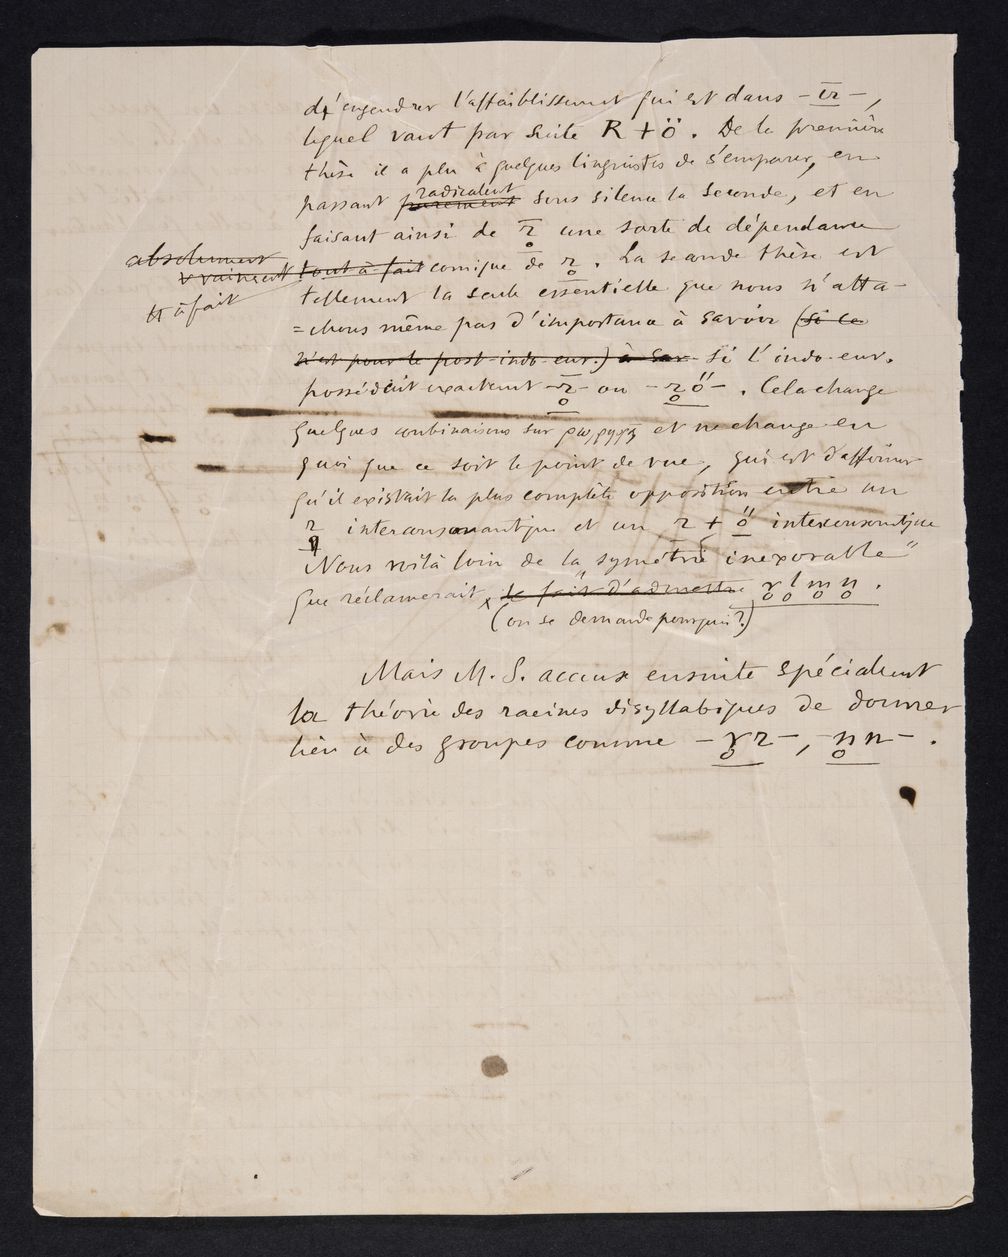 d'engendrer l'affaiblissement qui est dans – r̥̄ –,
lequel vaut par suite R + ö. De la première
thèse il a plu à quelques linguistes de s'emparer, en
passant purement radicalemt sous silence la seconde, et en
faisant ainsi de r̥̄ une sorte de dépendance
absolument
vraiment tout à fait comique de r̥. La seconde thèse est
tt à fait
tellement la seule essentielle que nous n'atta-
=chons même pas d'importance à savoir (si ce
n'est pour le post-indo-eur.) à sav. si l'indo-eur.
possédait exactement – r̥̄ – ou – r̥ö –. Cela change
quelques combinaisons sur ρω, et ne change en
quoi que ce soit le point de vue, qui est d'affirmer
qu'il existait la plus complète opposition entre un
r̥ interconsonantique et un r + ö interconsontique
Nous voilà loin de la "symétrie inexorable"
que réclamerait, le fait d'admettre r̥ l̥ m̥ n̥.
(on se demande pourquoi?)
Mais M. S. accuse ensuite spécialemt
la théorie des racines disyllabiques de donner
lieu à des groupes comme – r̥r –, – n̥n –.